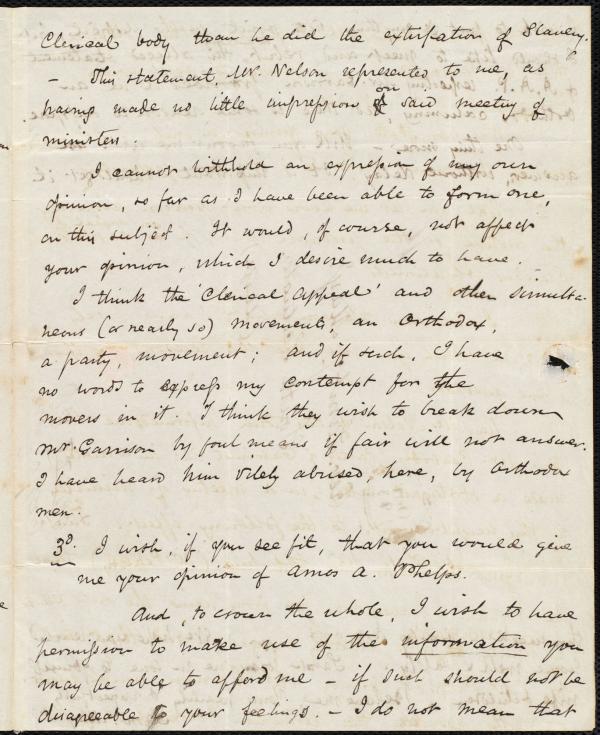 Clerical body than he did the extirpation of Slavery.
– This statement, Mr. Nelson represented to me, as
having made no little impression on said meeting of
ministers.
I cannot withhold an expression of my own
opinion, so far as I have been able to form one,
on this subject. It would, of course, not affect
your opinion, which I desire much to have.
I think the 'Clerical Appeal' and other simulta-
neous (or nearly so) movements, an Orthodox,
a party, movement; and if such, I have
no words to express my contempt for the
movers in it. I think they wish to break down
Mr. Garrison by foul means if fair will not answer.
I have heard him vilely abused, here, by Orthodox
men.
3d. I wish, if you see fit, that you would give
me your opinion of Amos A. Phelps.
And, to crown the whole, I wish to have
permission to make use of the information you
may be able to afford me – if such should not be
disagreeable to your feelings. – I do not mean that